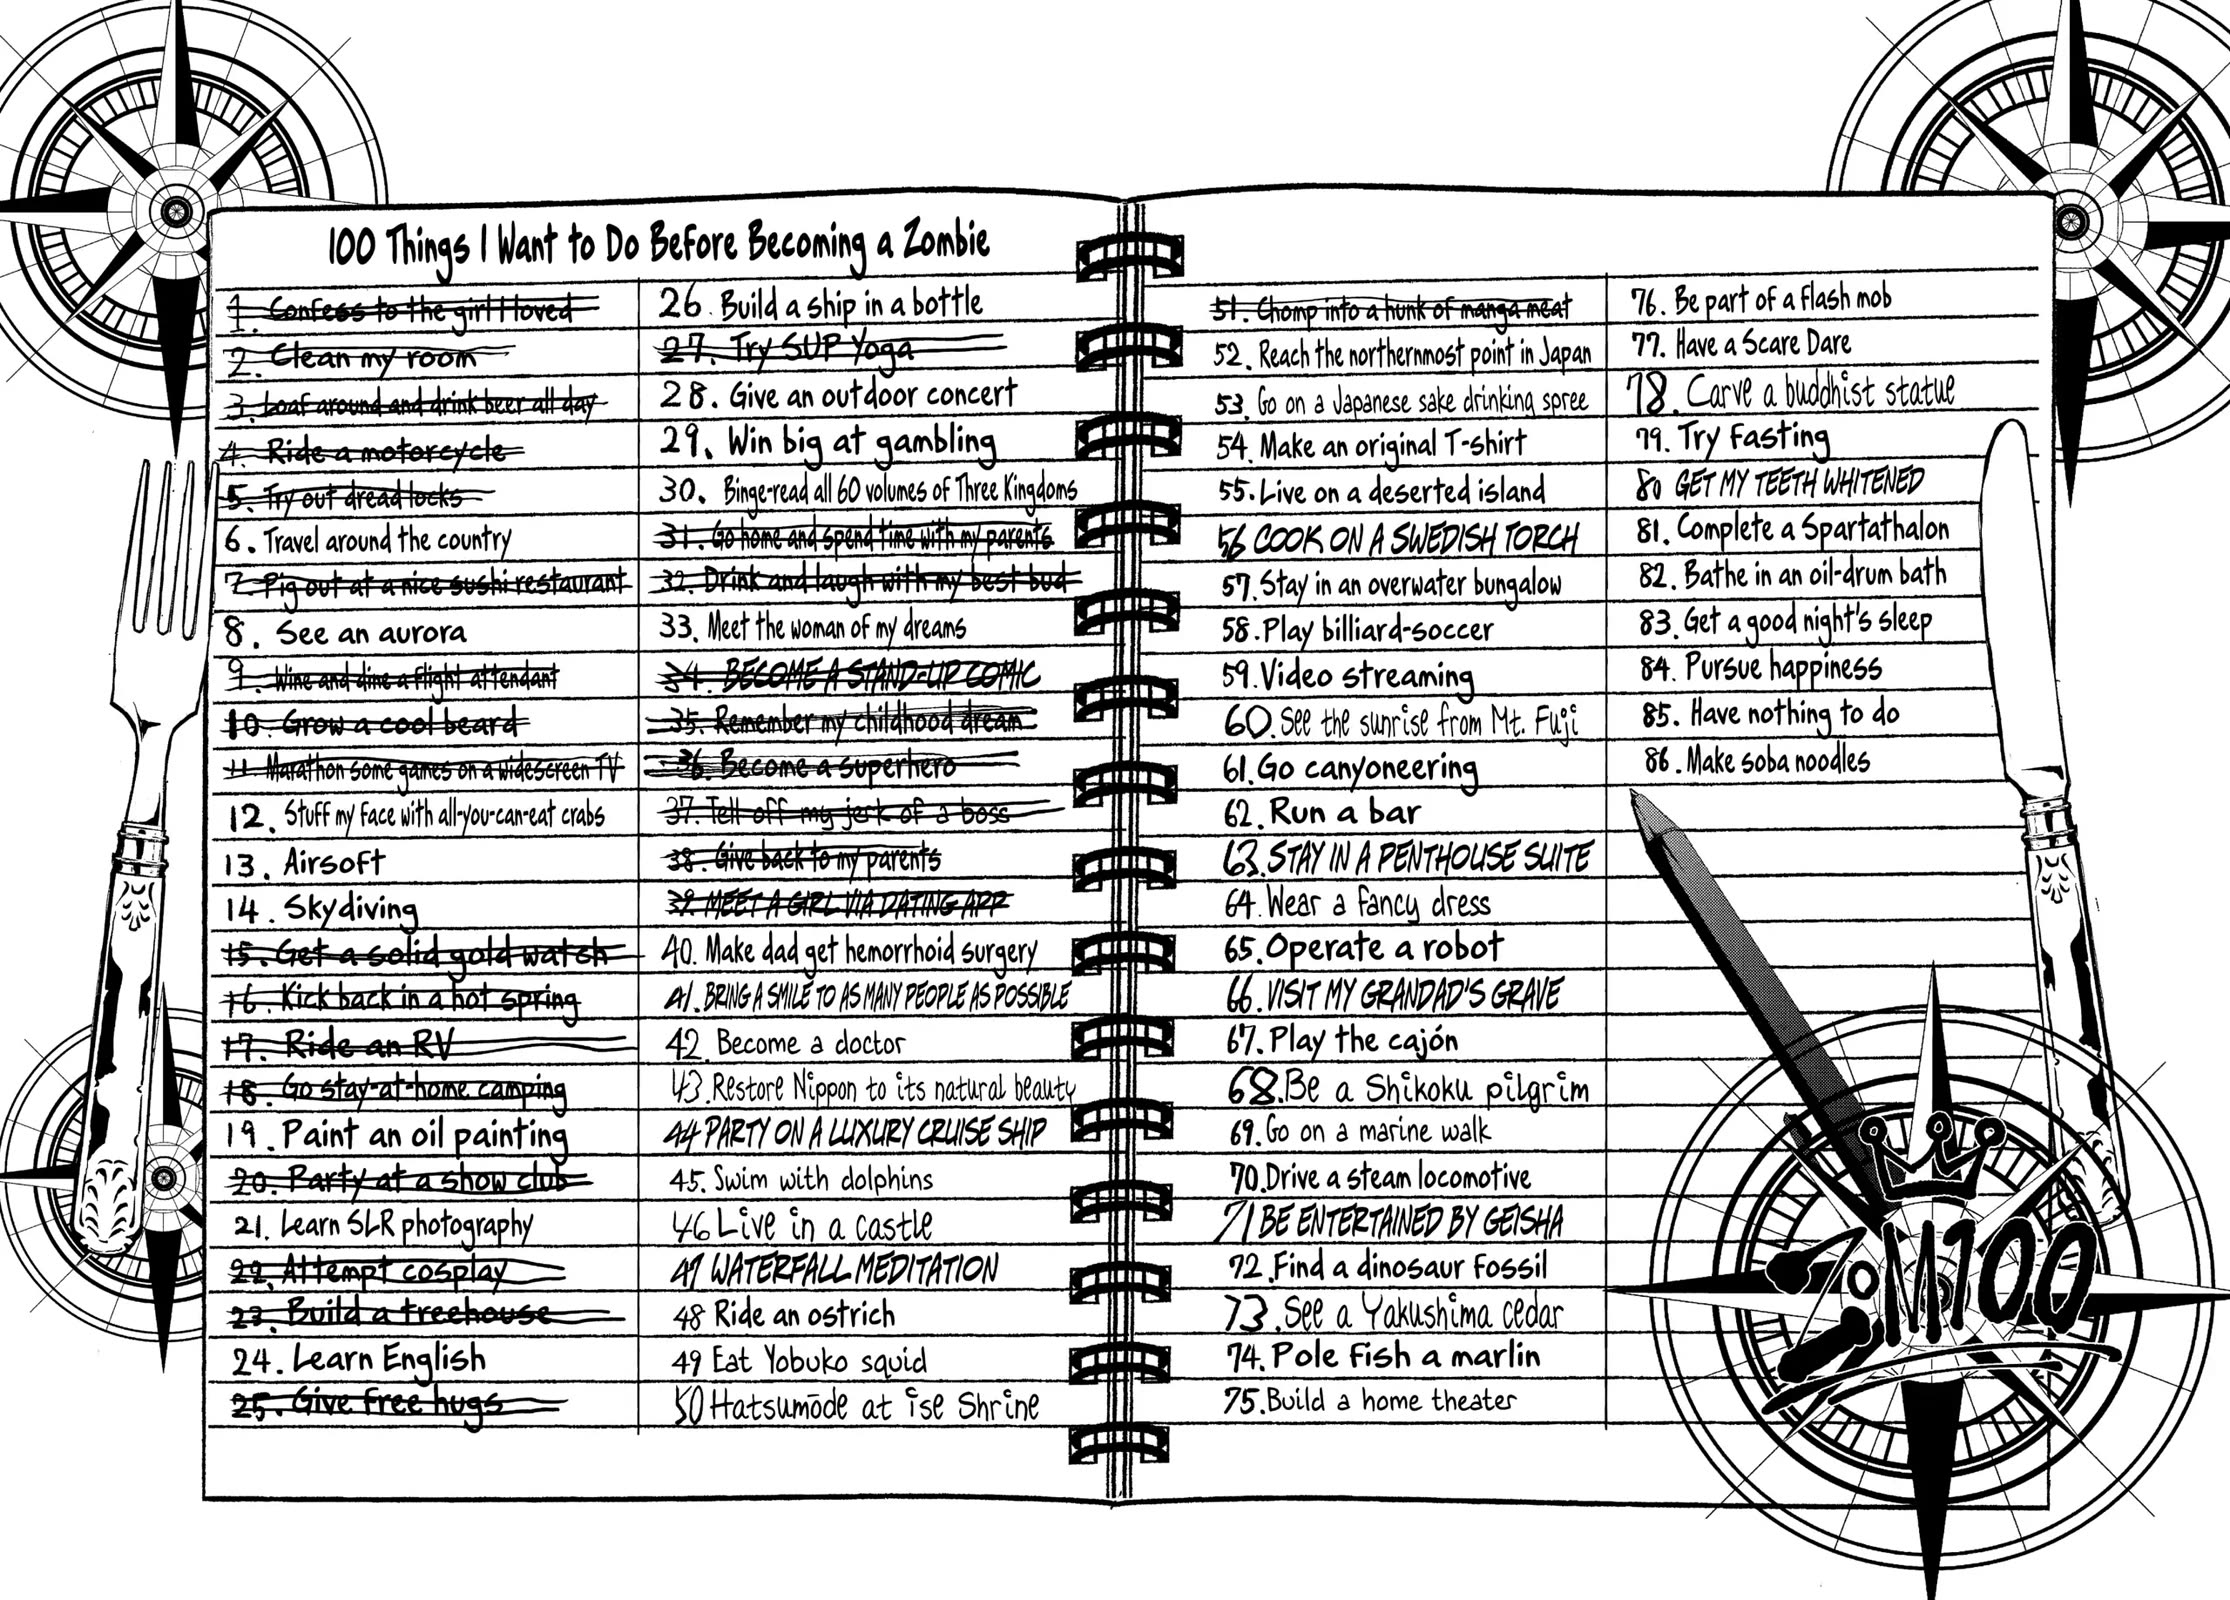 100 Things I Want to Do Before Becoming a Zombie
1. Confess to the girl I loved
2. Clean my room
3. Loaf around and drink beer all day
4. Ride a motorcycle
5. Try out dreadlocks
6. Travel around the country
7. Pig out at a nice sushi restaurant
8. See an aurora
9. Wine and dine a flight attendant
10. Grow a cool beard
11. Marathon some games on a widescreen TV
12. Stuff my face with all-you-can-eat crabs
13. Airsoft
14. Skydiving
15. Get a solid gold watch
16. Kick back in a hot spring
17. Ride an RV
18. Go stay-at-home camping
19. Paint an oil painting
20. Party at a show club
21. Learn SLR photography
22. Attempt cosplay
23. Build a treehouse
24. Learn English
25. Give free hugs
26. Build a ship in a bottle
27. Try SUP Yoga
28. Give an outdoor concert
29. Win big at gambling
30. Binge-read all 60 volumes of Three Kingdoms
31. Go home and spend time with my parents
32. Drink and laugh with my best bud
33. Meet the woman of my dreams
34. BECOME A STAND-UP COMIC
35. Remember my childhood dream
36. Become a superhero
37. Tell off my jerk of a boss
38. Give back to my parents
39. MEET A GIRL VIA DATING APP
40. Make dad get hemorrhoid surgery
41. BRING A SMILE TO AS MANY PEOPLE AS POSSIBLE
42. Become a doctor
43. Restore Nippon to its natural beauty
44 PARTY ON A LUXURY CRUISE SHIP
45. Swim with dolphins
46 Live in a castle
47 WATERFALL MEDITATION
48 Ride an ostrich
49 Eat Yobuko squid
50 Hatsumōde at ise Shrine
51. Chomp into a hunk of manga meat
52. Reach the northernmost point in Japan
53. Go on a Japanese sake drinking spree
54. Make an original T-shirt
55. Live on a deserted island
56 COOK ON A SWEDISH TORCH
57. Stay in an overwater bungalow
58. Play billiard-soccer
59. Video streaming
60. See the sunrise from Mt. Fuji
61. Go canyoneering
62. Run a bar
63. STAY IN A PENTHOUSE SUITE
64. Wear a fancy dress
65. Operate a robot
66. VISIT MY GRANDAD'S GRAVE
67. Play the cajón
68. Be a Shikoku pilgrim
69. Go on a marine walk
70. Drive a steam locomotive
71 BE ENTERTAINED BY GEISHA
72. Find a dinosaur fossil
73. See a Yakushima cedar
74. Pole fish a marlin
75. Build a home theater
76. Be part of a flash mob
77. Have a Scare Dare
78. Carve a buddhist statue
79. Try fasting
80 GET MY TEETH WHITENED
81. Complete a Spartathalon
82. Bathe in an oil-drum bath
83. Get a good night's sleep
84. Pursue happiness
85. Have nothing to do
86. Make soba noodles
ZOM100